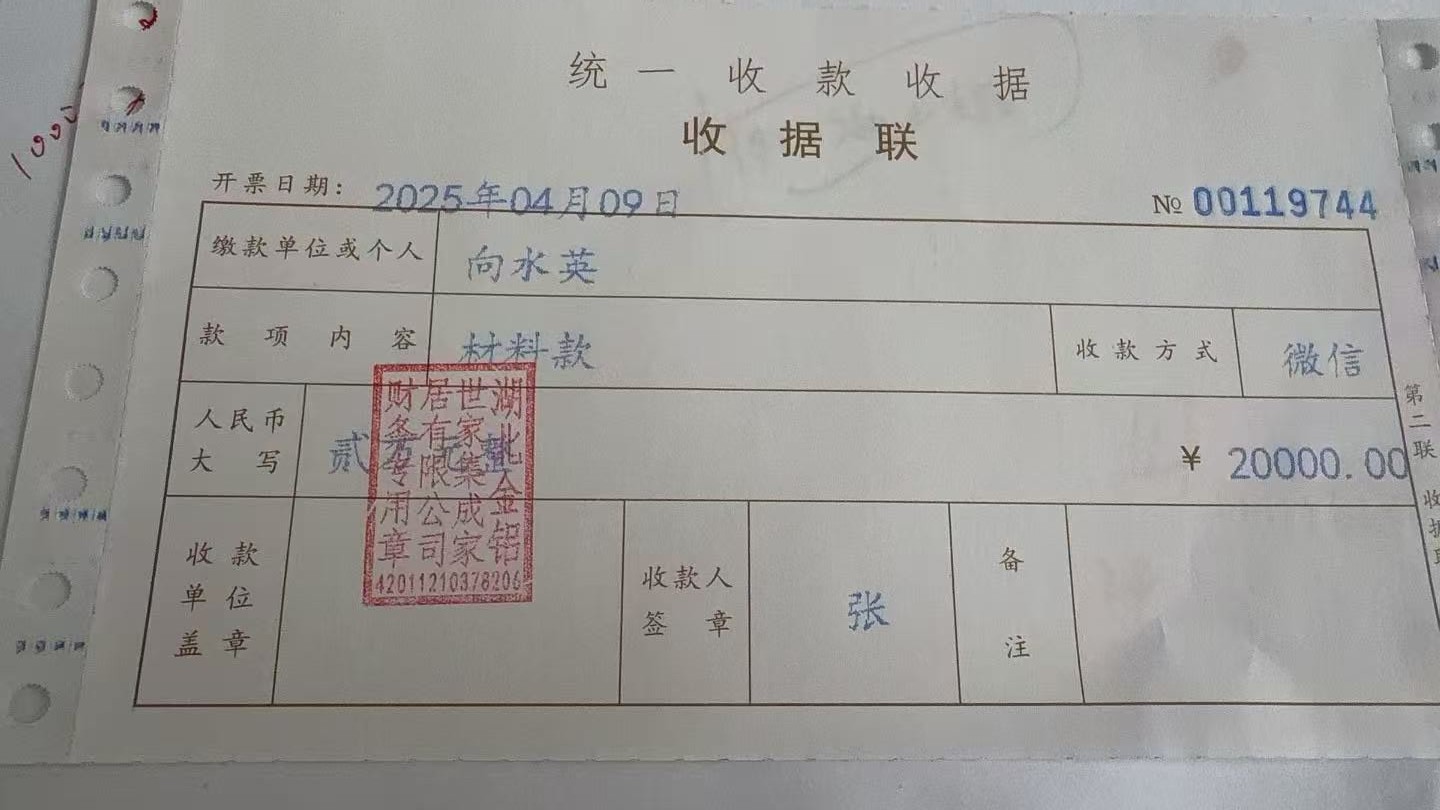 统一收款收据
收据联
开票日期: 2025年04月09日
№ 00119744
缴款单位或个人 向水英
款项内容 材料款 收款方式 微信
人民币大写 贰万元整 ¥ 20000.00
收款单位盖章 收款人签章 张 备注
湖北金铝
世家集成家
居有限公司
财务专用章
42011210378206
第二联 收据联